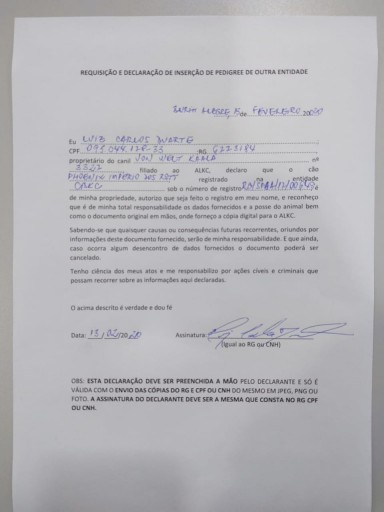 REQUISIÇÃO E DECLARAÇÃO DE INSERÇÃO DE PEDIGREE DE OUTRA ENTIDADE
de FEVEREIRO 2020
Eu LUIS CARLOS DUARTE
CPF 093.044.128-33 RG
proprietário do canil VON nº
filiado ao ALKC, declaro que o cão
IMPERIO DOS registrado na entidade
sob o número de registro e
de minha propriedade, autorizo que seja feito o registro em meu nome, e reconheço
que é de minha total responsabilidade as dados fornecidos e a posse do animal bem
como o documento original em mãos, onde forneço a cópia digital para o ALKC.
Sabendo se que quaisquer causas ou consequências futuras recorrentes, oriundos por
informações deste documento fornecido, serão de minha responsabilidade. E que ainda,
caso ocorra algum desencontro de dados fornecidos o documento poderá ser
cancelado.
Tenho ciência dos meus atos e me responsabilizo por ações cíveis e criminais que
possam recorrer sobre as informações aqui declaradas.
O acima descrito é verdade e dou fé
Data: 13/02/2020 Assinatura:
(Igual ao RG ou CNH)
OBS: ESTA DECLARAÇÃO DEVE SER PREENCHIDA A MÃO PELO DECLARANTE E SÓ É
VÁLIDA COM O ENVIO DAS CÓPIAS DO RG E CPF OU CNH DO MESMO EM JPEG, PNG OU
FOTO. A ASSINATURA DO DECLARANTE DEVE SER A MESMA QUE CONSTA NO RG CPF
OU CNH.